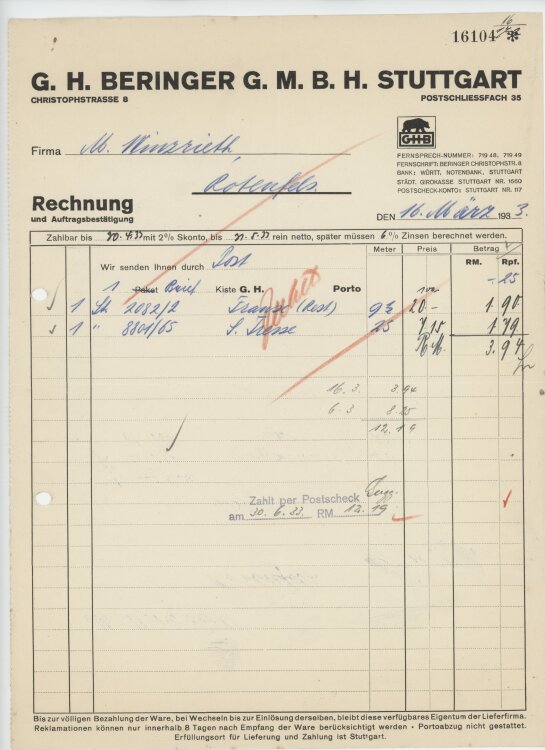 16104 *
G. H. BERINGER G. M. B. H. STUTTGART
CHRISTOPHSTRASSE 8 POSTSCHLIESSFACH 35
GHB
Firma M. Winzrieth,
Rotenfels
FERNSPRECH-NUMMER: 719 48, 719 49
FERNSCHRIFT: BERINGER CHRISTOPHSTR. 8
BANK: WÜRTT. NOTENBANK, STUTTGART
STÄDT. GIROKASSE STUTTGART NR. 1660
POSTSCHECK-KONTO: STUTTGART NR. 117
Rechnung
und Auftragsbestätigung
DEN 16. März 1933.
Zahlbar bis 30.4.33 mit 2% Skonto, bis 31.5.33 rein netto, später müssen 6% Zinsen berechnet werden.
Meter Preis Betrag
RM. Rpf.
Wir senden Ihnen durch Post
1 Paket Brief Kiste G. H. Porto -25
1 St. 2082/2 Franse (Rest) 9½ 20- 1 90
1 " 8801/65 S. Tresse 25 7,15 1 79
RM. 3.94
16. 3. 3.94
6. 3 8.25
12.19
Zahlt per Postscheck
am 30. 6. 33. RM 12.19
Bis zur völligen Bezahlung der Ware, bei Wechseln bis zur Einlösung derselben, bleibt diese verfügbares Eigentum der Lieferfirma.
Reklamationen können nur innerhalb 8 Tagen nach Empfang der Ware berücksichtigt werden · Portoabzug nicht gestattet.
Erfüllungsort für Lieferung und Zahlung ist Stuttgart.